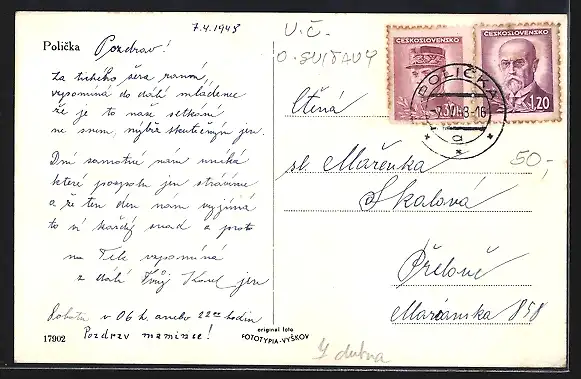 7.4.1948
Polička Pozdrav!
Za tichého šera ranní,
vzpomíná do dáli mládenec
že je to naše setkání
ne snem, nýbrž skutečným jen.
Dní samotné nám uniká
které pospolu jen strávíme
a že ten den nám
to ví každý snad a proto
na Tebe vzpomíná
z dáli Tvůj Karel jen
Sobota v 06 h. anebo 22°° hodin
Pozdrav mamince!
17902
original foto
FOTOTYPIA-VYŠKOV
U.Č.
O. SVITAVY
ČESKOSLOVENSKO
ČESKOSLOVENSKO
1.20
POLIČKA
50,-
sl. Mařenka
Skalová
Přelouč
858
7 dubna